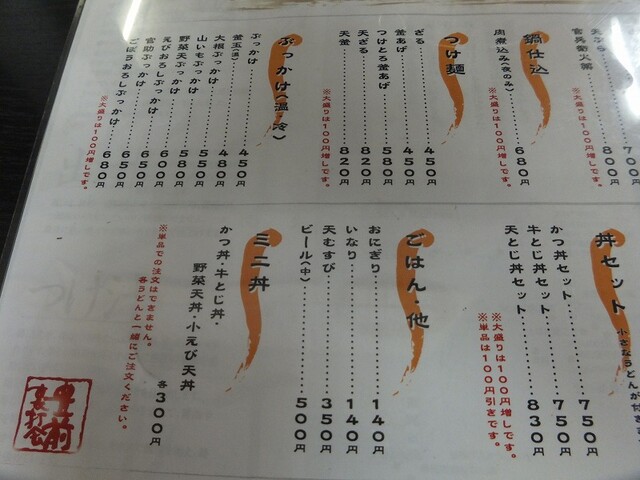 天ぷら‥‥‥‥‥700円
官兵衛火鍋‥‥‥‥‥800円
※大盛りは100円増しです。
鍋仕込
肉煮込み(夜のみ)‥‥‥680円
※大盛りは100円増しです。
つけ麺
ざる‥‥‥‥‥450円
釜あげ‥‥‥‥‥450円
つけとろ釜あげ‥‥‥‥‥580円
天ざる‥‥‥‥‥820円
天釜‥‥‥‥‥820円
※大盛りは100円増しです。
ぶっかけ(温・冷)
ぶっかけ‥‥‥‥‥450円
釜玉(温)‥‥‥‥‥480円
大根ぶっかけ‥‥‥‥‥550円
山いもぶっかけ‥‥‥‥‥550円
野菜天ぶっかけ‥‥‥‥‥580円
えびおろしぶっかけ‥‥‥‥‥600円
官助ぶっかけ‥‥‥‥‥650円
ごぼうおろしぶっかけ‥‥‥‥‥650円
680円
※大盛りは100円増しです。
丼セット 小さなうどんが付きま
かつ丼セット‥‥‥‥‥750円
牛とじ丼セット‥‥‥‥‥750円
天とじ丼セット‥‥‥‥‥830円
※大盛りは100円増しです。
※単品は100円引きです。
ごはん・他
おにぎり‥‥‥‥‥140円
いなり‥‥‥‥‥140円
天むすび‥‥‥‥‥350円
ビール(中)‥‥‥‥‥500円
ミニ丼
かつ丼・牛とじ丼・
野菜天丼・小えび天丼
各300円
※単品での注文はできません。
各うどんと一緒にご注文ください。